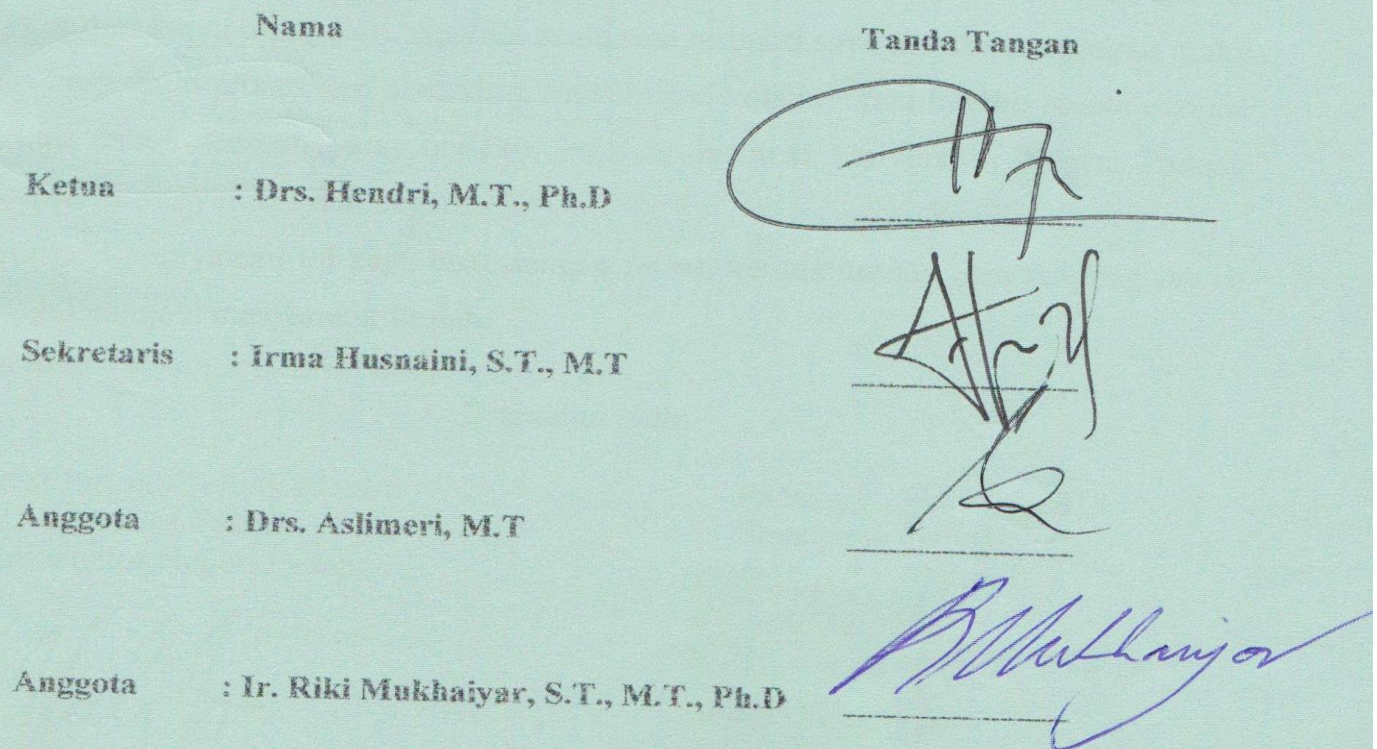 Nama Tanda Tangan
Ketua : Drs. Hendri, M.T., Ph.D
Sekretaris : Irma Husnaini, S.T., M.T
Anggota : Drs. Aslimeri, M.T
Anggota : Ir. Riki Mukhaiyar, S.T., M.T., Ph.D